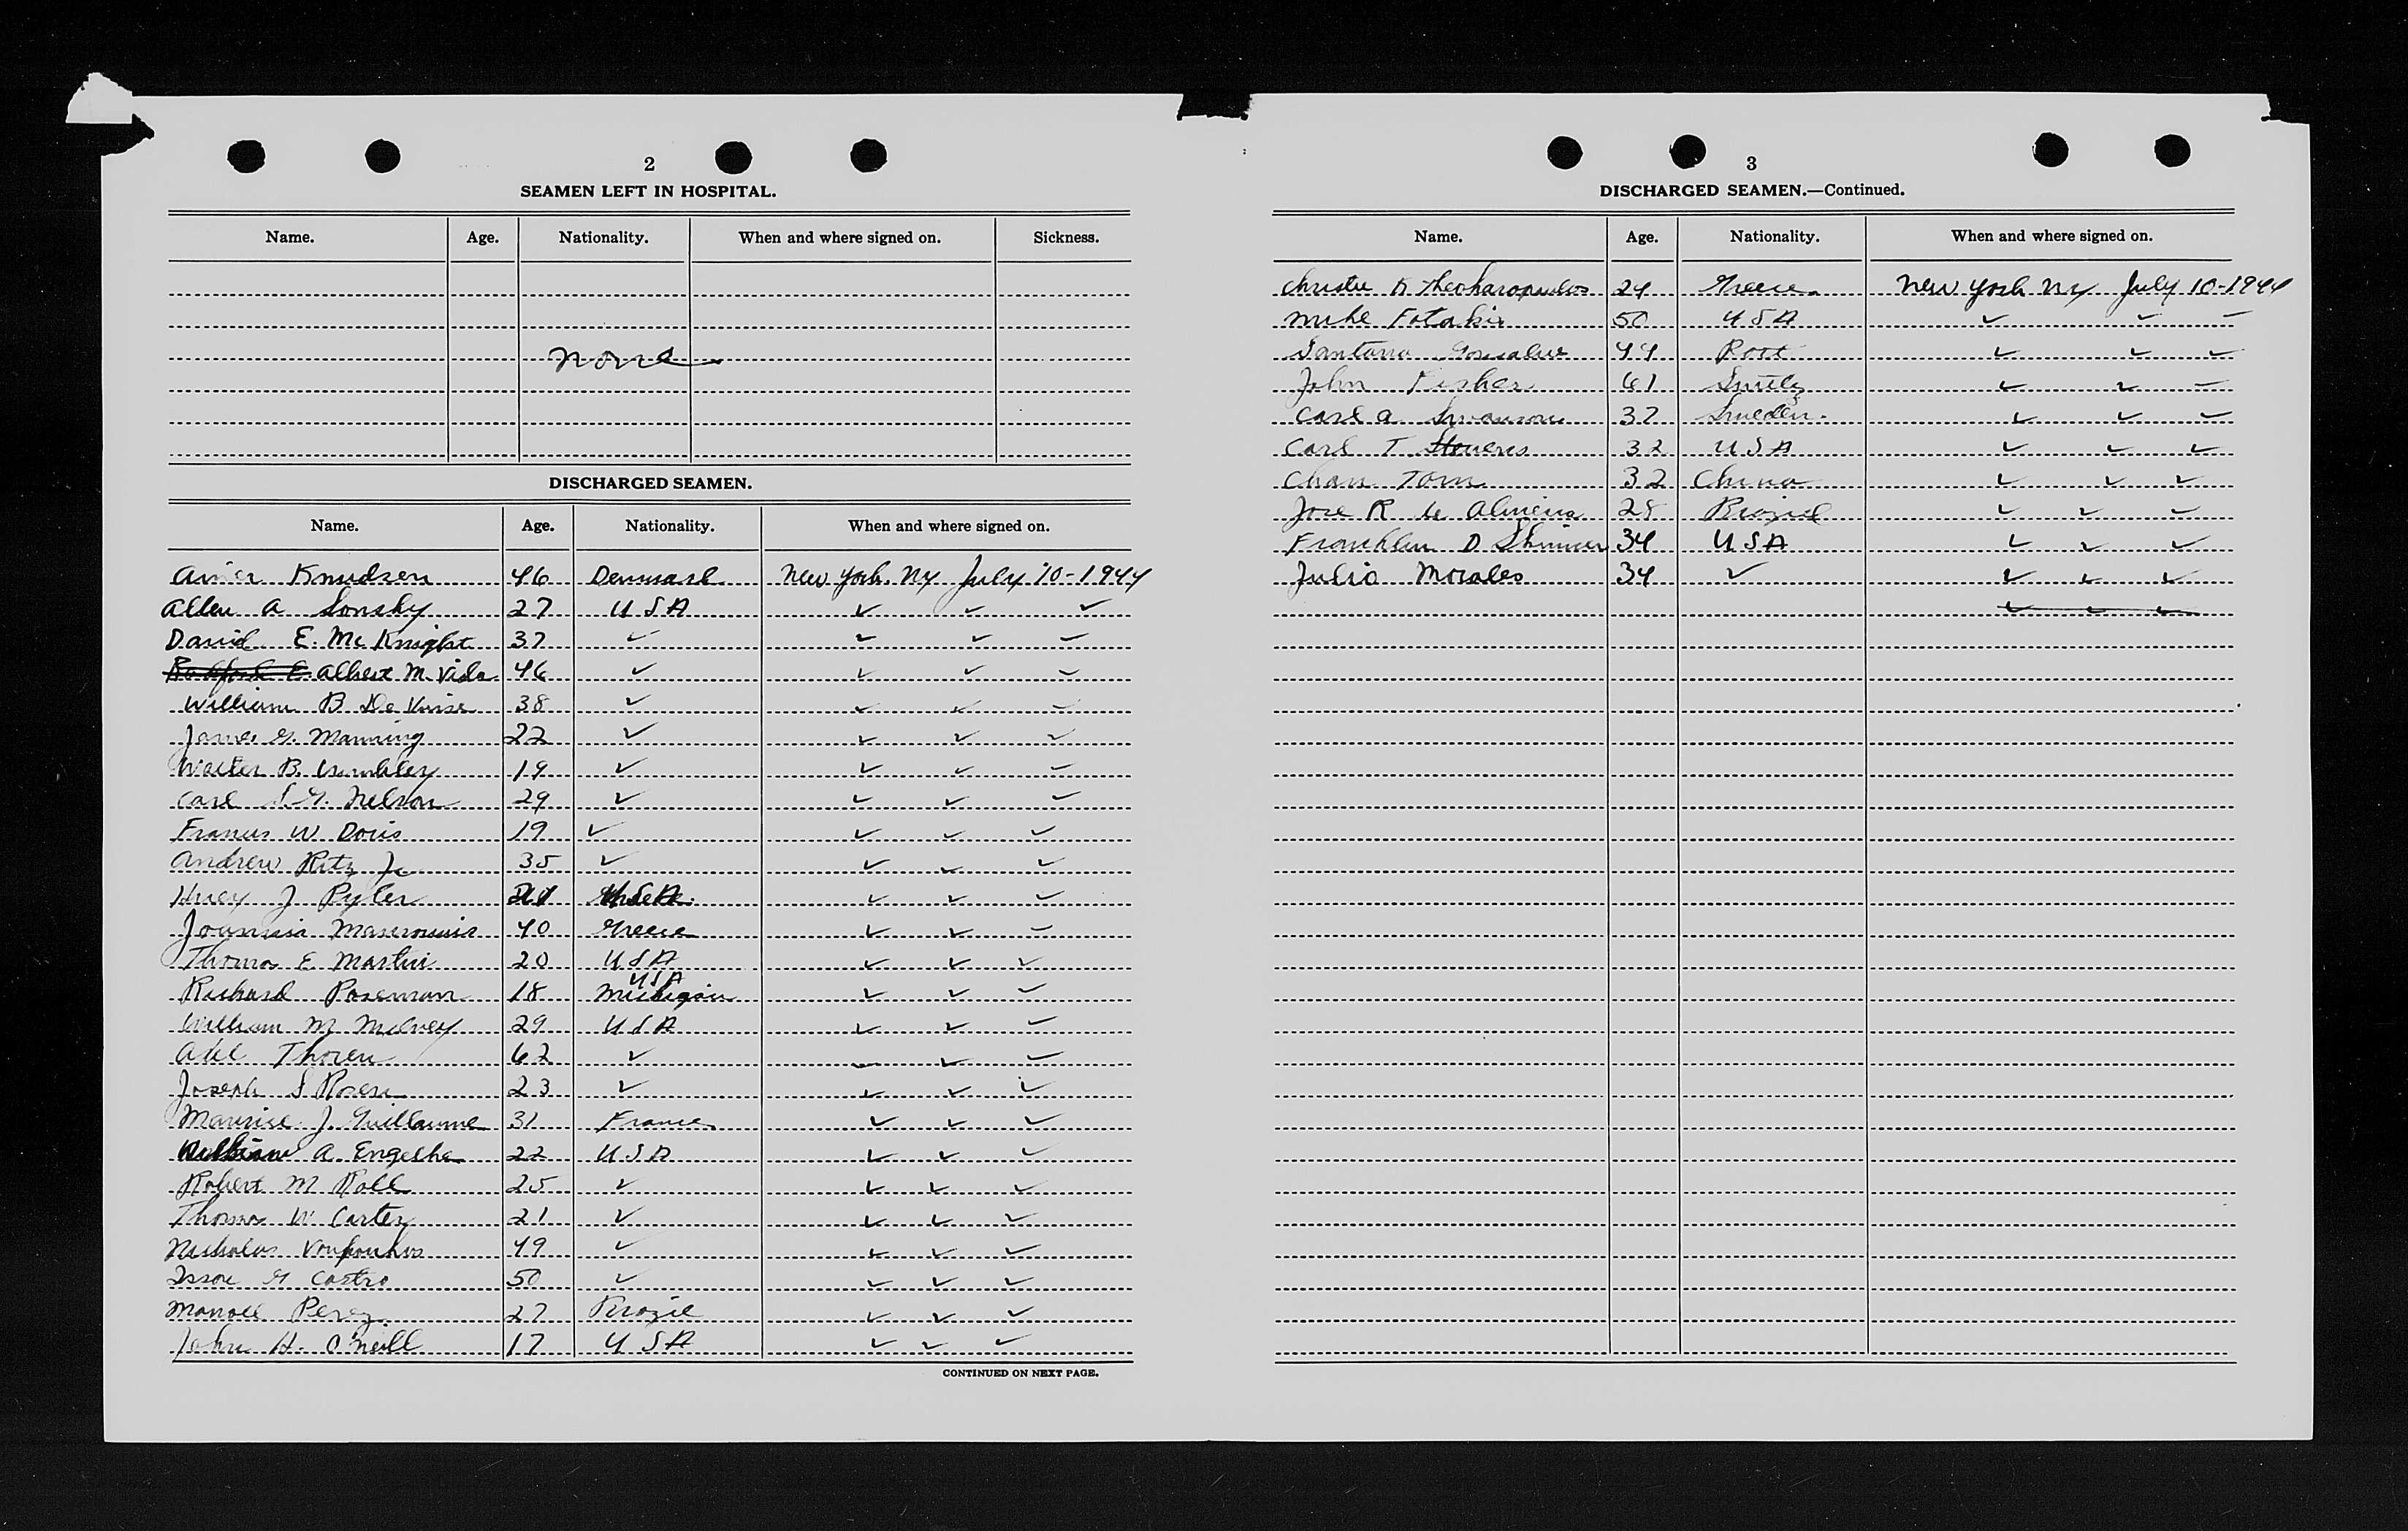 2
SEAMEN LEFT IN HOSPITAL.
Name. Age. Nationality. When and where signed on. Sickness.
none
DISCHARGED SEAMEN.
Name. Age. Nationality. When and where signed on.
Knudsen 46 Denmark New York. Ny July 10-1944
Allen A Sonsky 27 USA ✓ ✓ ✓
David E. McKnight 37 ✓ ✓ ✓ ✓
Albert M. Vida 46 ✓ ✓ ✓ ✓
William B 38 ✓ ✓ ✓ ✓
James G. Manning 22 ✓ ✓ ✓ ✓
Walter B. 19 ✓ ✓ ✓ ✓
Carl S.G. Nelson 29 ✓ ✓ ✓ ✓
Francis W Doris 19 ✓ ✓ ✓ ✓
Andrew Ritz Jr 35 ✓ ✓ ✓ ✓
Huey J Pyler USA. ✓ ✓ ✓
40 Greece ✓ ✓ ✓
Thomas E Martin 20 USA ✓ ✓ ✓
Richard Poseman 18 USA Michigan ✓ ✓ ✓
William M 29 USA ✓ ✓ ✓
Thoren 62 ✓ ✓ ✓ ✓
Joseph S Rosen 23 ✓ ✓ ✓ ✓
Maurice J. Guillaume 31 France ✓ ✓ ✓
William A. Engelke 22 USA ✓ ✓ ✓
Robert M Roll 25 ✓ ✓ ✓ ✓
Thomas W Carter 21 ✓ ✓ ✓ ✓
Nicholas 49 ✓ ✓ ✓ ✓
G Castro 50 ✓ ✓ ✓ ✓
Manoel Perez 27 Brazil ✓ ✓ ✓
John H. O'Neill 17 USA ✓ ✓ ✓
CONTINUED ON NEXT PAGE.
3
DISCHARGED SEAMEN.—Continued.
Name. Age. Nationality. When and where signed on.
Christie D Theoharopoulos 24 Greece New York Ny July 10-1944
Mike Fotakis 50 USA ✓ ✓ ✓
Santana 44 ✓ ✓ ✓
John Fisher 61 ✓ ✓ ✓
Carl A Swanson 37 Sweden. ✓ ✓ ✓
Carl T Stevens 32 USA ✓ ✓ ✓
Chan Tom 32 China ✓ ✓ ✓
Jose R de 28 Brazil ✓ ✓ ✓
Franklin D Skinner 34 USA ✓ ✓ ✓
Julio Morales 34 ✓ ✓ ✓ ✓
✓ ✓ ✓